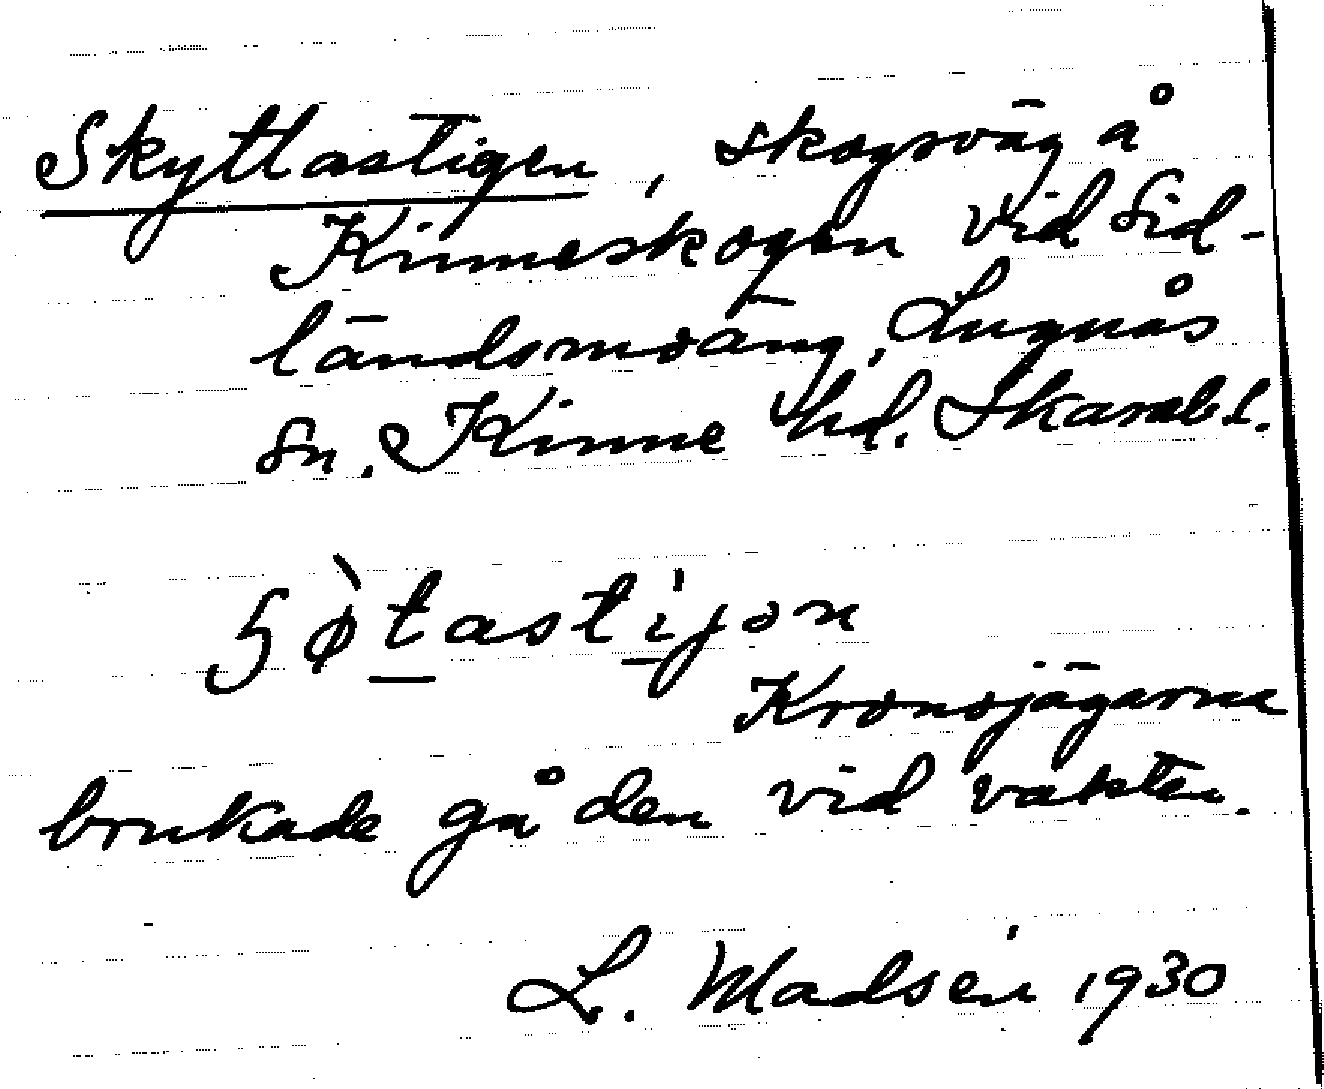 Skyttastigen, skogsväg å
Kinneskogen vid Sid-
ländsmoäng, Lugnås
sn. Kinne hd. Skarab. l.
ʃø̀tastijɔn
Kronojägarna
brukade gå den vid vakten.
L. Madsén 1930